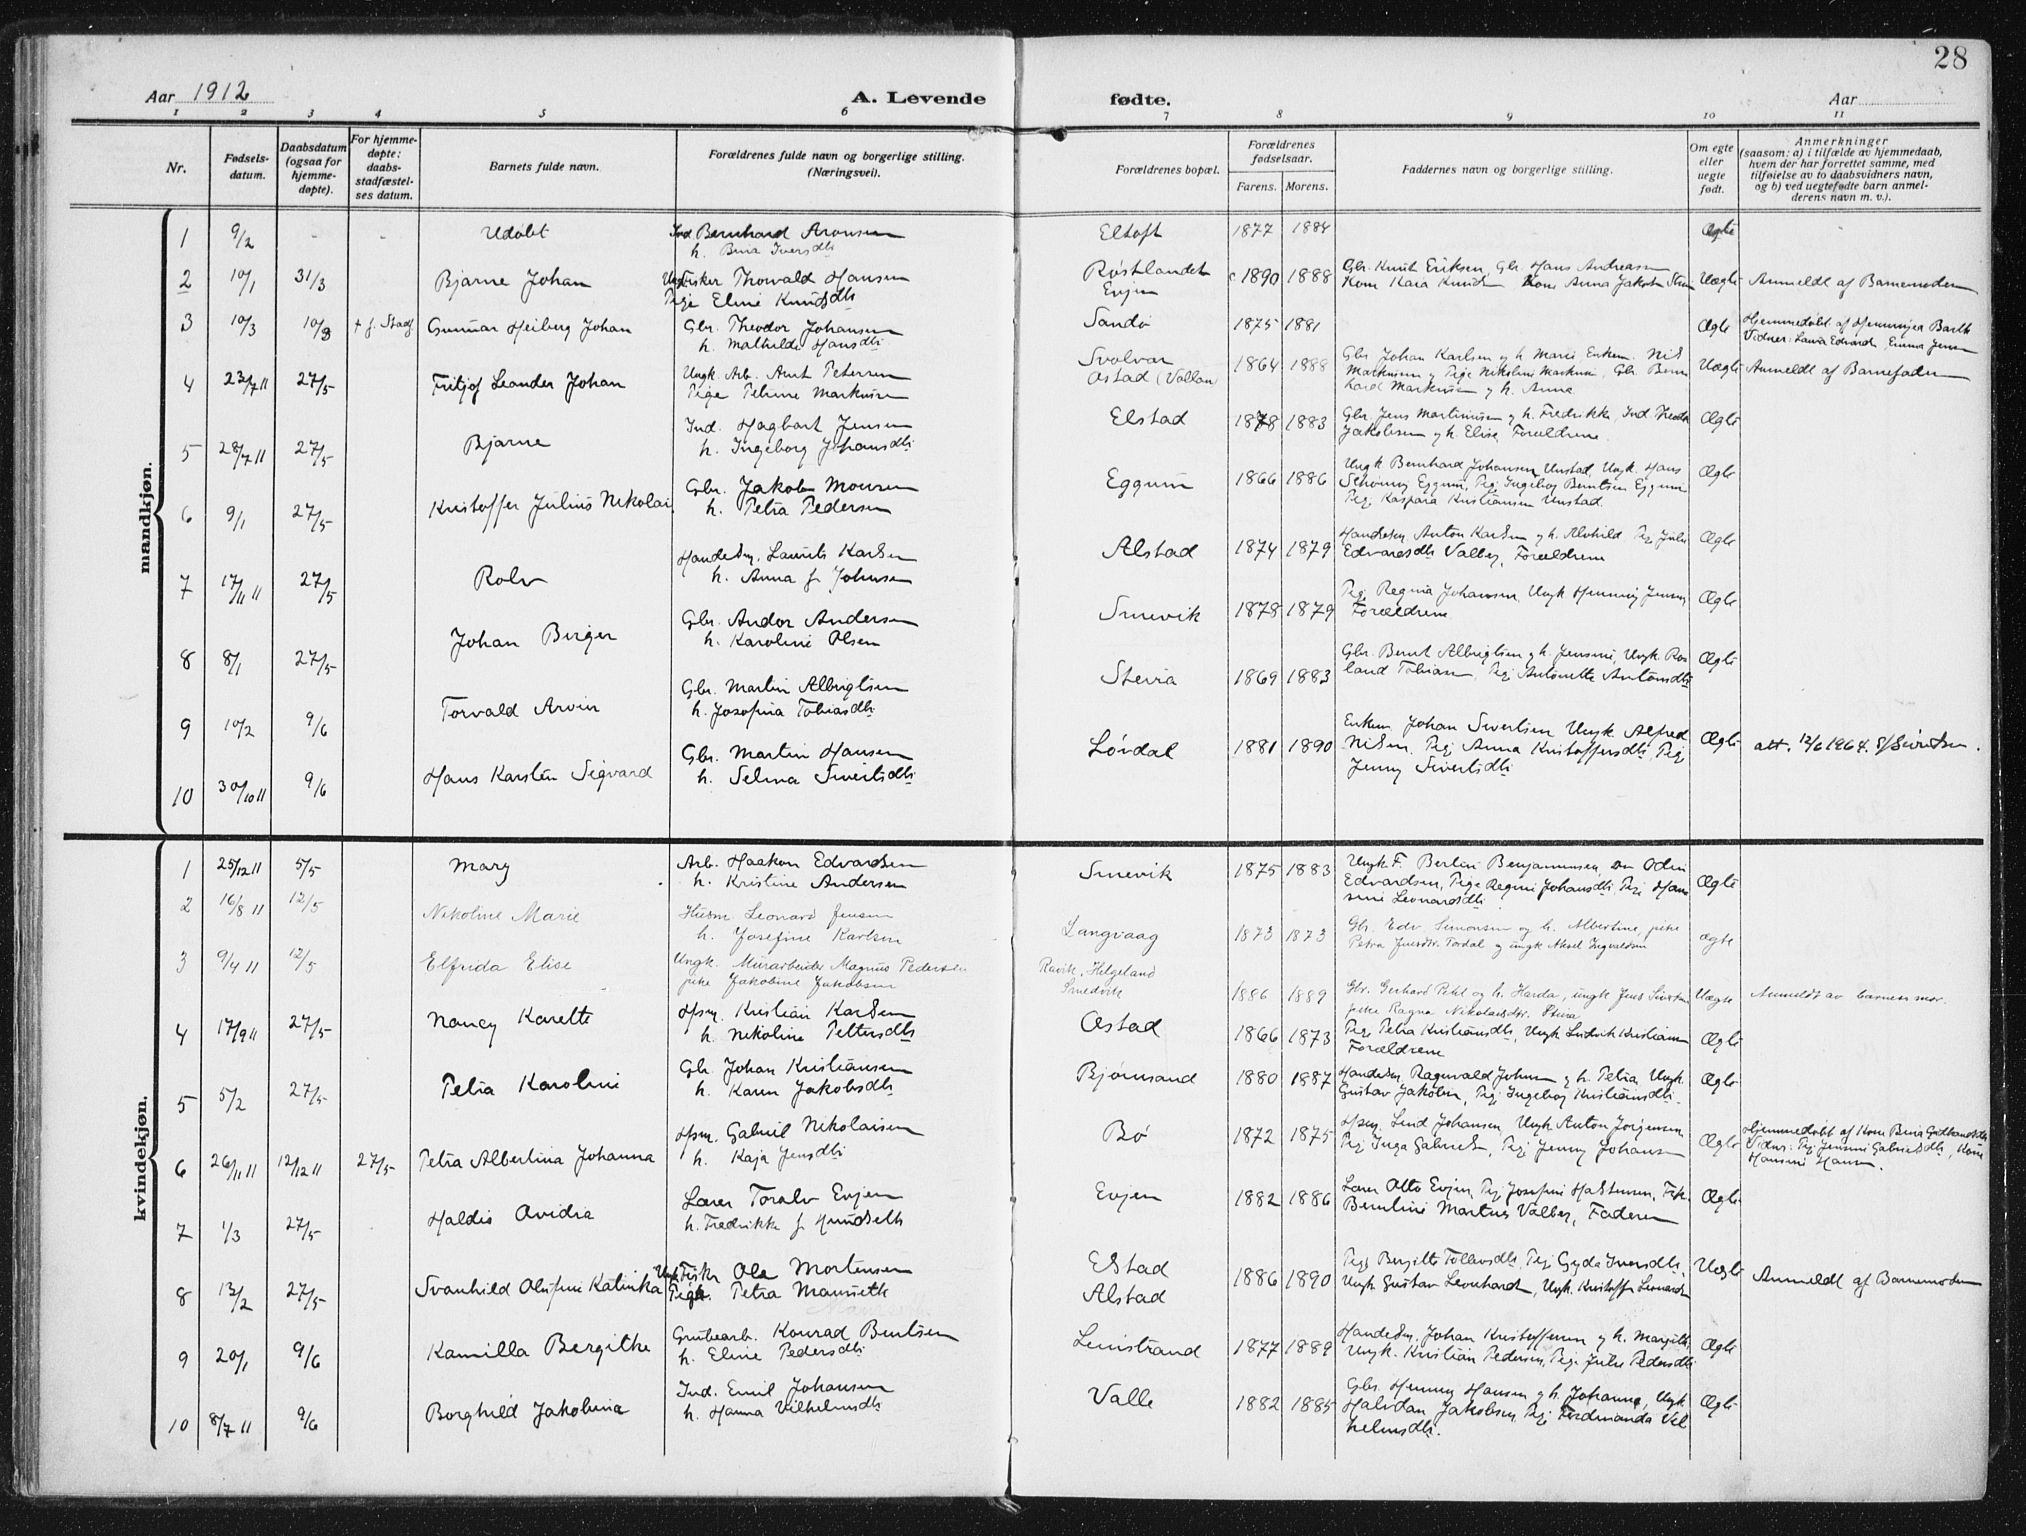 28
Aar 1912
A. Levende
fødte.
Aar
1 2 3 4 5 6 7 8 9 10 11
Nr.
Fødsels-
datum.
Daabsdatum
(ogsaa for
hjemme-
døpte).
For hjemme-
døpte:
daabs-
stadfæstel-
ses datum.
Barnets fulde navn.
Forældrenes fulde navn og borgerlige stilling.
(Næringsvei).
Forældrenes bopæl.
Forældrenes
fødselsaar.
Farens. Morens.
Faddernes navn og borgerlige stilling.
Om egte
eller
uegte
født.
Anmerkninger
(saasom: a) i tilfælde av hjemmedaab,
hvem der har forrettet samme, med
tilføielse av to daabsvidners navn,
og b) ved uegtefødte barn anmel-
derens navn m. v.).
mandkjøn.
1 9/2 - - Udøbt Ind. Bernhard Aronsen Eltoft 1877 1884 Ægte
h. Bina Iversdtr
2 10/1 31/3 Bjarne Johan Ungk. Fisker Thorvald Hansen Røstlandet c 1890 1888 Gbr. Knut Eriksen, Gbr. Hans Andreassen Uægte Anmeldt af Barnemoderen
Pige Eline Knudsdtr Evjen Kone Kaia Knudsen Kone Anna Jakobsen
3 10/3 10/3 + f. Stadf. Gunnar Heiberg Johan Gbr. Theodor Johansen Sandø 1875 1881 Ægte Hjemmedøbt af Barth
h. Mathilde Hansdtr Vidner: Laura Edvard. Emma Jensen
4 23/7 11 27/5 Fritjof Leander Johan Ungk. Arb. Arnt Petersen Svolvær 1864 1888 Gbr Johan Karlsen og h. Marie Enkem. Nils Uægte Anmeldt af Barnefaderen
Pige Petrine Markussen Ostad (Vallan) Markussen og Pige Nikoline Markussen, Gbr Bern
hard Markussen og h. Anna
5 28/7 11 27/5 Bjarne Ind. Hagbart Jensen Elstad 1878 1883 Gbr. Jens Martinusen og h. Fredrikke, Ind. Theodor Ægte
h. Ingeborg Johansdtr Jakobsen og h. Elise, Forældrene.
6 9/1 27/5 Kristoffer Julius Nikolai Gbr. Jakob Mousen Eggum 1866 1886 Ungk Bernhard Johansen Unstad, Ungk. Hans Ægte
h. Petra Pedersen Schøning Eggum, Pig. Ingeborg Berntsen Eggum
Pig. Kaspara Kristiansen Unstad.
7 17/11 11 27/5 Rolv Handelsm. Laurits Karlsen Alstad 1874 1879 Handelsm. Anton Karlsen og h. Alvhild, Pig. Julie Ægte
h. Anna f. Johnsen Edvardsdtr Valberg, Forældrene
8 8/1 27/5 Johan Birger Gbr. Andor Andersen Smevik 1878 1879 Pig. Regina Johansen, Ungk Henning Jensen Ægte
h. Karoline Olsen Forældrene
9 10/2 9/6 Torvald Arvin Gbr. Martin Albrigtsen Steira 1869 1883 Gbr. Bernt Albrigtsen og h. Jensine, Ungk. Ros Ægte
h. Josefina Tobiasdtr land Tobiasen, Pig. Antonette Antonsdtr
10 30/10 11 9/6 Hans Karsten Sigvard Gbr. Martin Hansen Løvdal 1881 1890 Enkem Johan Sivertsen Ungk. Alfred Ægte att. 12/6 1964.
h. Selma Sivertsdtr Nilsen, Pig. Anna Kristoffersdtr Pig
Jenny Sivertsdtr
kvindekjøn.
1 25/12 11 5/5 Mary Arb. Haakon Edvardsen Smevik 1875 1883 Ungk. F. Bertin Benjaminsen, Odin Ægte
h. Kristine Andersen Edvardsen, Pige Regine Johansdtr Pig Han
sine Leonardsdtr
2 16/8 11 12/5 Nikoline Marie Husm. Leonard Jensen Langvaag 1873 1873 Gbr. Edv. Simonsen og h. Albertine, pike ægte
h. Josefine Karlsen Petra Jensdtr. Tordal og ungk Aksel Ingvaldsen
3 9/4 11 12/5 Elfrida Elise Ungk. Murarbeider Magnus Pedersen Ravik, Helgeland 1886 1889 Gbr. Gerhard Pehl og h. Harda, ungk Jens Sivertsen Uægte Anmeldt av barnets mor.
pike Jakobine Jakobsen Smedvik pike Ragna Nikolaisdtr. Steira
4 17/9 11 27/5 Nancy Karette Hsm. Kristian Karlsen Ostad 1866 1873 Pig. Petra Kristiansdtr, Ungk Ludvik Kristiansen Ægte
h. Nikoline Pettersdtr Forældrene
5 5/2 27/5 Petra Karoline Gbr Johan Kristiansen Bjørnsand 1880 1887 Handelsm. Ragnvald Johnsen og h. Petra, Ungk. Ægte
h. Karen Jakobsdtr Gustav Jakobsen, Pig. Ingeborg Kristiansdtr.
6 26/11 11 12/12 11 27/5 Petra Albertina Johanna Hsm. Gabriel Nikolaisen Bø 1872 1875 Hsm. Lind Johansen, Ungk Anton Jørgensen Ægte Hjemmedøbt af Kone Bina
h. Kaja Jensdtr Pig Inga Gabrielsen, Pig. Jenny Johansen Vidner: Pig Jensine Gabrielsdtr, Kone
Hansine Hansen.
7 1/3 27/5 Haldis Ovidia Lærer Toralv Evjen Evjen 1882 1886 Lærer Otto Evjen, Pig Josefine Halstensen, Frk. Ægte
h. Fredrikke f. Hundseth Berntine Martens Valberg, Faderen
8 12/2 27/5 Svanhild Olufine Katinka Ungk. Fisker Ole Mortensen Elstad 1886 1890 Pig Bergitte Tollevsdtr, Pig Gyda Iversdtr, Uægte Anmeldt af Barnemoderen
Pige Petra Mauseth Alstad Ungk Gustav Leonhardsen, Ungk. Kristoffer Leonardsen
9 20/1 9/6 Kamilla Bergitke Grubearb. Konrad Bentsen Leinstrand 1877 1889 Handelsm. Johan Kristoffersen og h. Margith, Ægte
h. Eline Pedersdtr Ungk. Kristian Pedersen, Pige Julie Pedersdtr
10 8/7 11 9/6 Borghild Jakobina Ind. Emil Johansen Valle 1882 1885 Gbr. Henning Hansen og h. Johanna, Ungk. Ægte
h. Hanna Vilhelmsdtr Halvdan Jakobsen, Pig Ferdinanda Vil
helmsdtr.